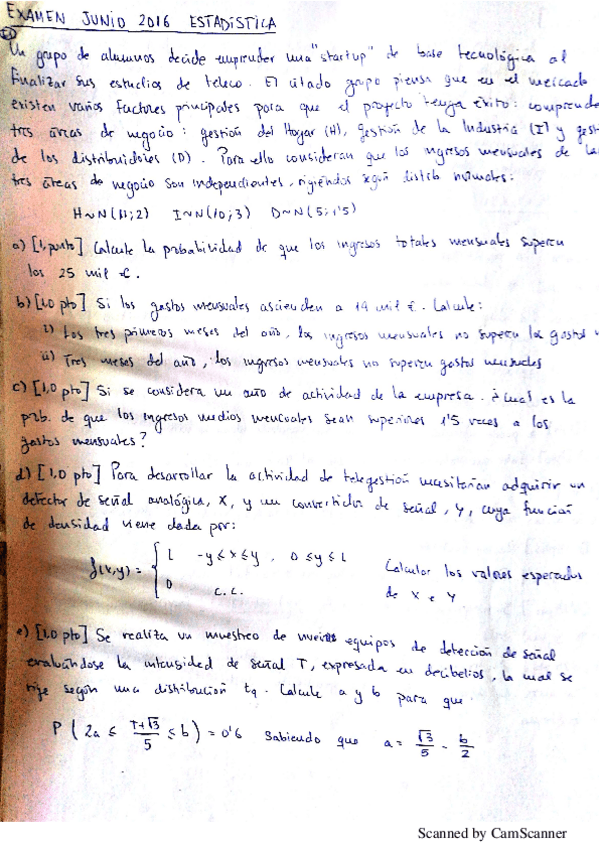 EXAMEN JUNIO 2016 ESTADÍSTICA
Un grupo de alumnos decide emprender una "startup" de base tecnológica al
finalizar sus estudios de teleco. El citado grupo piensa que en el mercado
existen varios factores principales para que el proyecto tenga éxito: comprende
tres áreas de negocio: gestión del Hogar (H), Gestión de la Industria (I) y gest
de los distribuidores (D). Para ello consideran que los ingresos mensuales de la
tres áreas de negocio son independientes, rigiéndose según distrib normales:
H~N(11;2) I~N(10;3) D~N(5;1'5)
a) [1, punto] Calcule la probabilidad de que los ingresos totales mensuales superen
los 25 mil €.
b) [1,0 pto] Si los gastos mensuales ascienden a 19 mil €. Calcule:
i) Los tres primeros meses del año, los ingresos mensuales no superen los gastos
ii) Tres meses del año, los ingresos mensuales no superen gastos mensuales
c) [1,0 pto] Si se considera un año de actividad de la empresa. ¿Cual es la
prob. de que los ingresos medios mensuales sean superiores 1'5 veces a los
gastos mensuales?
d) [1,0 pto] Para desarrollar la actividad de telegestión necesitarían adquirir un
detector de señal analógica, X, y un convertidor de señal, Y, cuya función
de densidad viene dada por:
f(x,y) = { 1 -y ≤ x ≤ y, 0 ≤ y ≤ 1 Calcular los valores esperados
0 c.c. de X e Y
e) [1,0 pto] Se realiza un muestreo de equipos de detección de señal
evaluándose la intensidad de señal T, expresada en decibelios, la cual se
rige según una distribución t9. Calcule a y b para que
P(2a ≤ T+√3/5 ≤ b) = 0'6 Sabiendo que a = √3/5 - b/2
Scanned by CamScanner